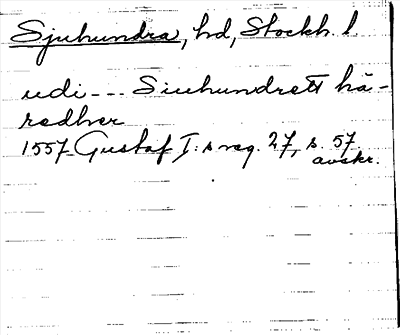 Sjuhundra, hd, Stockh. l
udi --- Siuhundrett hä-
redher
1557 Gustaf I:s reg. 27, s. 57.
avskr.